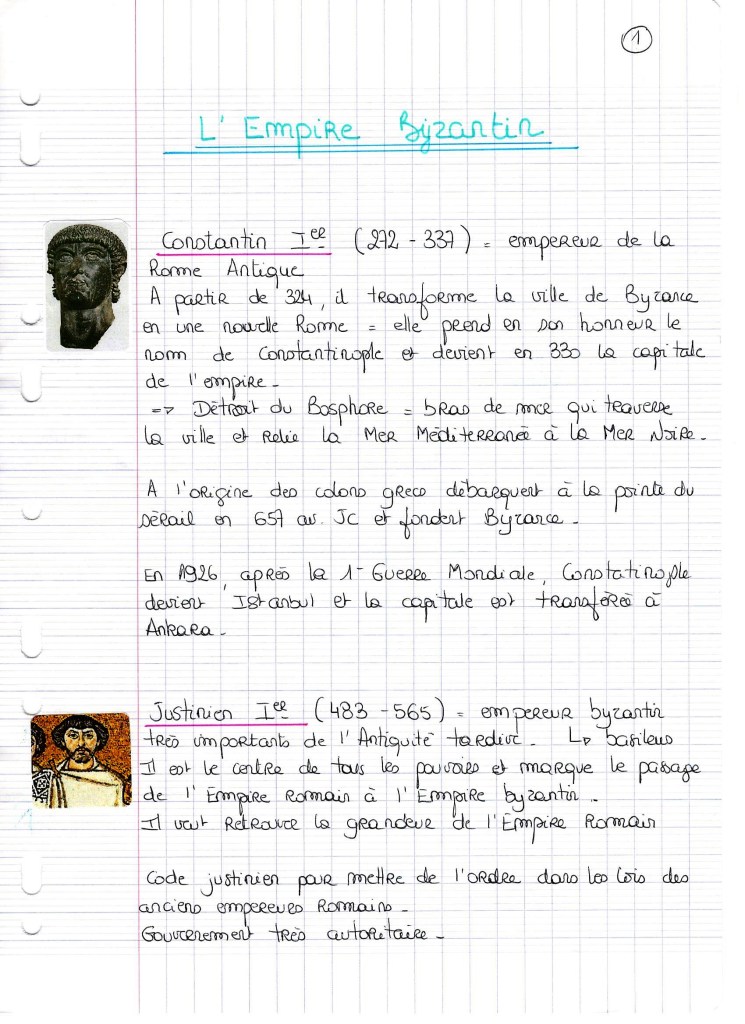 1
L'Empire Byzantin
Constantin Ier (272 - 337) = empereur de la
Rome Antique
A partir de 324, il transforme la ville de Byzance
en une nouvelle Rome = elle prend en son honneur le
nom de Constantinople et devient en 330 la capitale
de l'empire -
=> Détroit du Bosphore = bras de mer qui traverse
la ville et relie la Mer Méditerranée à la Mer Noire -
A l'origine des colons grecs débarquent à la pointe du
Sérail en 657 av. JC et fondent Byzance -
En 1926, après la 1- Guerre Mondiale, Constatinople
devient Istanbul et la capitale est transférée à
Ankara -
Justinien Ier (483 - 565) = empereur byzantin
très importants de l'Antiquité tardive - ↳ basileus
Il est le centre de tous les pouvoirs et marque le passage
de l'Empire Romain à l'Empire byzantin -
Il veut retrouver la grandeur de l'Empire Romain
Code justinien pour mettre de l'ordre dans les lois des
anciens empereurs Romains -
Gouvernement très autoritaire -